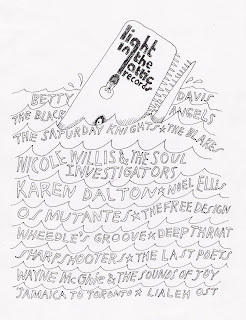 light
in the
attic
records
BETTY DAVIS
THE BLACK ANGELS
THE SATURDAY KNIGHTS ★ THE BLAKES
NICOLE WILLIS & THE SOUL
INVESTIGATORS
KAREN DALTON ★ NOEL ELLIS
OS MUTANTES ★ THE FREE DESIGN
WHEEDLE'S GROOVE ★ DEEP THROAT
SHARPSHOOTERS ★ THE LAST POETS
WAYNE McGHIE & THE SOUNDS OF JOY
JAMAICA TO TORONTO ★ LIALEH OST